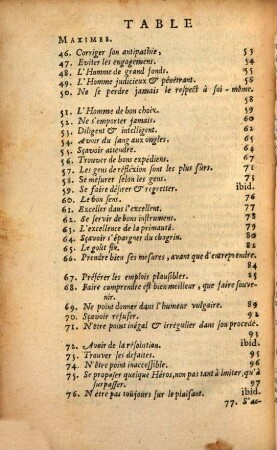 TABLE
MAXIMES.
46. Corriger son antipathie, 53
47. Eviter les engagemens. 54
48. L'Homme de grand fonds. 55
49. L'Homme judicieux & pénétrant. 56
50. Ne se perdre jamais le respect à soi-même.
51. L'Homme de bon choix.
52. Ne s'emporter jamais.
53. Diligent & intelligent.
54. Avoir du sang aux ongles.
55. Sçavoir attendre.
56. Trouver de bons expédiens.
57. Les gens de réflexion sont les plus sûrs. 71
58. Se mesurer selon les gens.
59. Se faire désirer & regretter. ibid.
60. Le bon sens.
61. Exceller dans l'excellent.
62. Se servir de bons instrumens.
63. L'excellence de la primauté.
64. Sçavoir s'épargner du chagrin.
65. Le goût fin. 82
66. Prendre bien ses mesures, avant que d'entreprendre. 84
67. Préférer les emplois plausibles. 85
68. Faire comprendre est bien meilleur, que faire souvenir.
69. Ne point donner dans l'humeur vulgaire. 89
70. Sçavoir refuser. 91
71. N'être point inégal & irrégulier dans son procedé. 92
72. Avoir de la résolution. ibid.
73. Trouver ses défaites.
74. N'être point inaccessible. 96
75. Se proposer quelque Héros, non pas tant à imiter, qu'à
surpasser. 97
76. N'être pas toujours sur le plaisant. ibid.
77. S'ac-